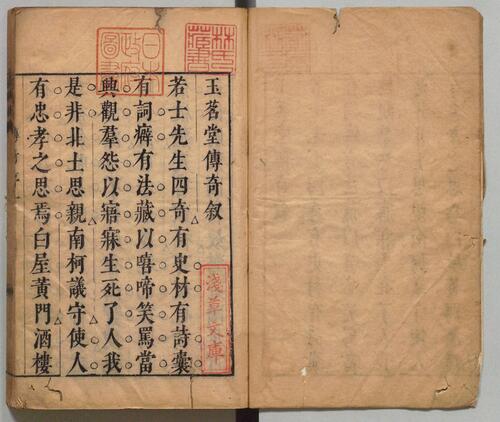 玉茗堂傳奇叙
若士先生四奇有史材有詩囊
有詞癖有法藏以嘻啼笑罵當
興觀羣怨以寤寐生死了人我
是非北土思親南柯議守使人
有忠孝之思焉白屋黃門酒樓
林氏藏書
日本政府圖書
淺草文庫